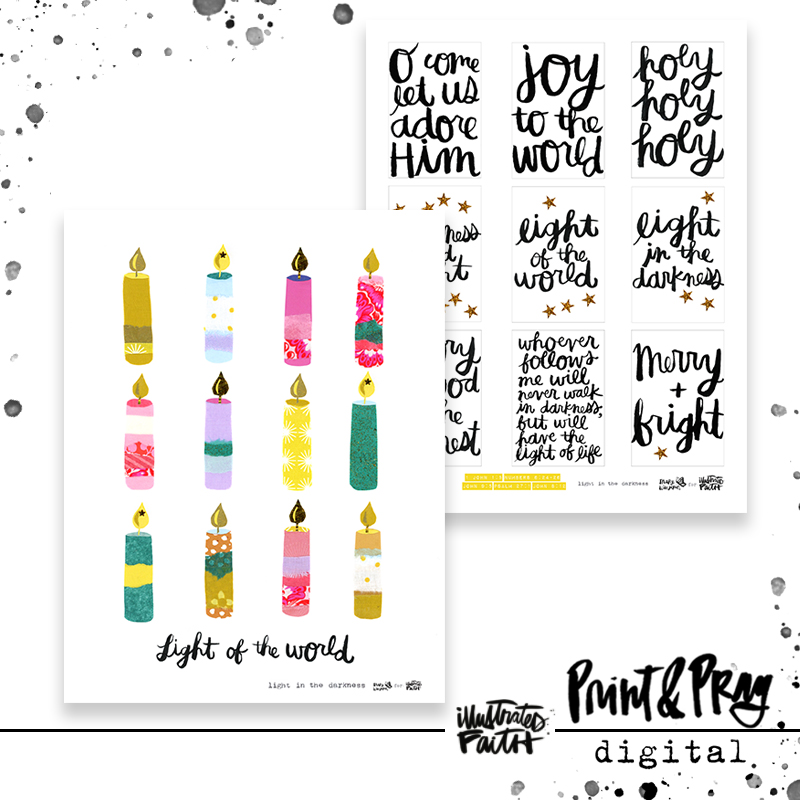 O come
let us
adore
Him
joy
to the
world
holy
holy
holy
light
of the
world
light
in the
darkness
whoever
follows
me will
never walk
in darkness,
but will
have the
light of life
Merry
+
bright
light in the darkness
for illustrated FAITH
light of the world
light in the darkness
for illustrated FAITH
illustrated FAITH
Print & Pray
digital